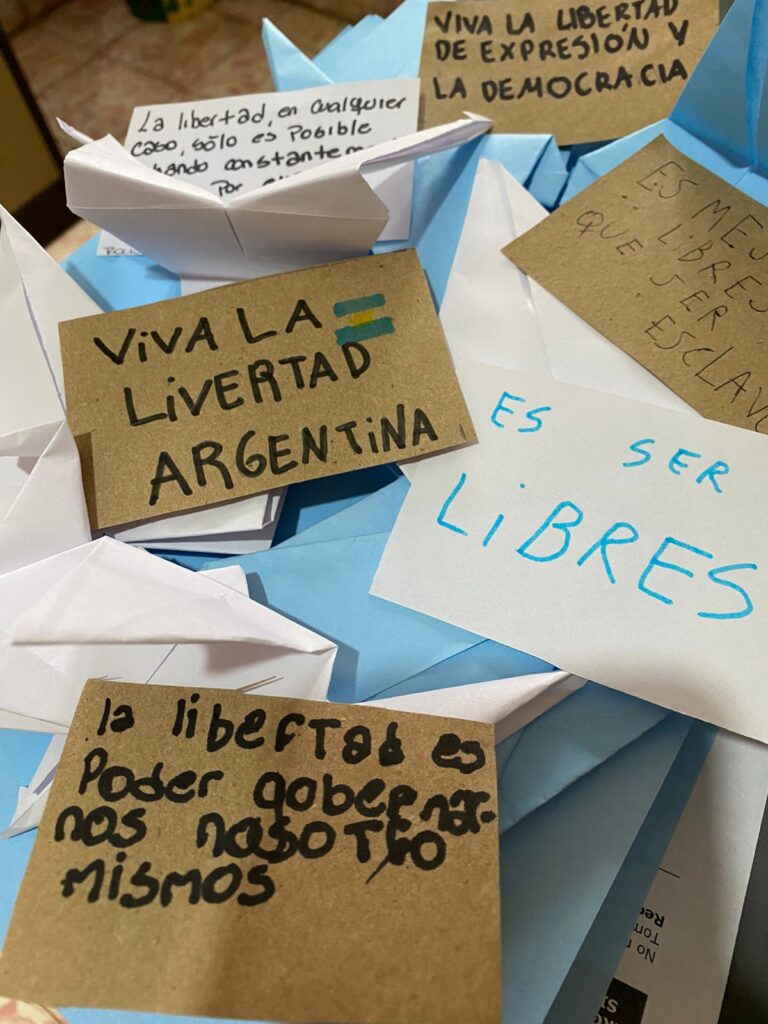 VIVA LA LIBERTAD
DE EXPRESIÓN Y
LA DEMOCRACIA
La libertad, en cualquier
caso, sólo es Posible
Por
ES
LIBRES
QUE SER
VIVA LA
LIVERTAD
ARGENTINA
ES SER
LIBRES
la libertad es
Poder gobernar-
nos nosotro
mismos
No